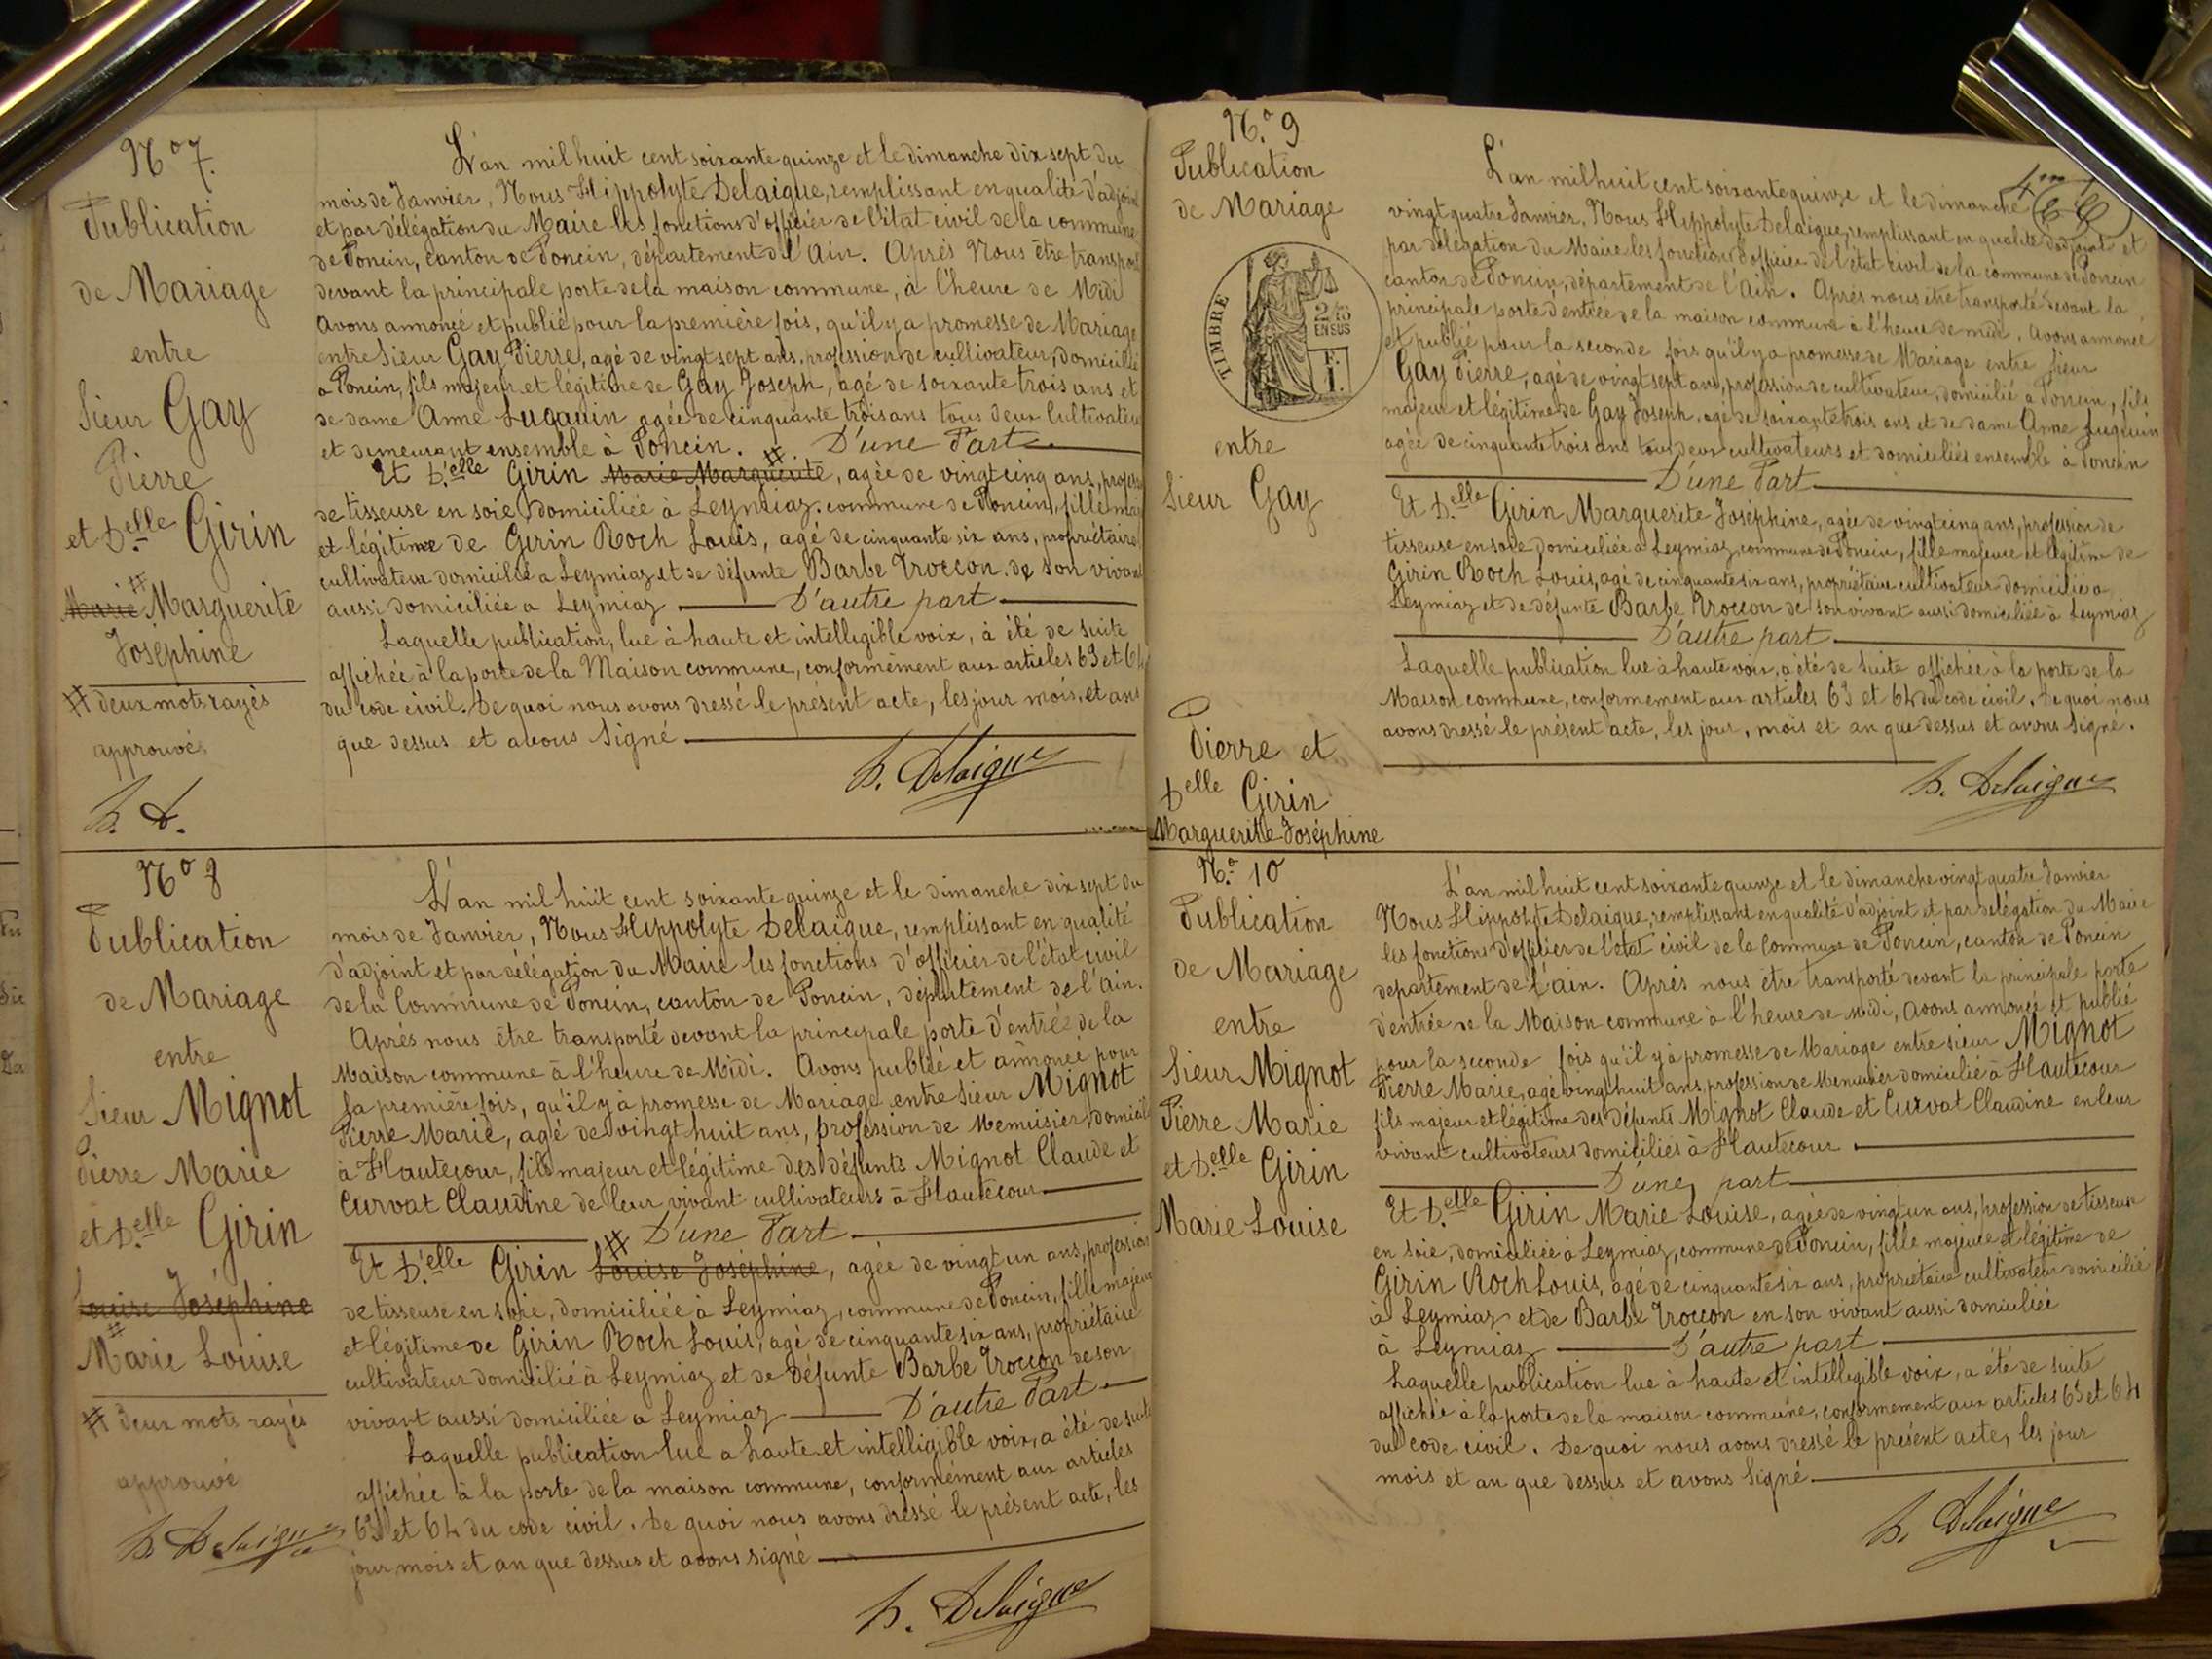 Nº 7.
Publication
de Mariage
entre
Sieur Gay
Pierre
et D.elle Girin
Marie # Marguerite
Josephine
# deux mots rayés
approuvés
h. D.
L'an mil huit cent soixante quinze et le dimanche dix sept du
mois de Janvier, Nous Hippolyte Delaigue, remplissant en qualité d'adjoint
et par délégation du Maire les fonctions d'officier de l'état civil de la commune
de Poncin, canton de Poncin, département de l'Ain. Après Nous être transporté
devant la principale porte de la maison commune, à l'heure de Midi
Avons annoncé et publié pour la première fois, qu'il y a promesse de Mariage
entre Sieur Gay Pierre, agé de vingt sept ans, profession de cultivateur, domicilié
a Poncin, fils majeur et légitime de Gay Joseph, agé de soixante trois ans et
de dame Anne Luquin agée de cinquante trois ans tous deux Cultivateurs
et demeurant ensemble à Poncin. D'une Part
Et D.elle Girin Marie Marguerite #, agée de vingt cinq ans, profession
de tisseuse en soie, domiciliée à Leymiaz, commune de Poncin, fille majeure
et légitime de Girin Roch Louis, agé de cinquante six ans, propriétaire
cultivateur domicilié a Leymiaz et de défunte Barbe Troccon de son vivant
aussi domiciliée a Leymiaz D'autre part
Laquelle publication, lue à haute et intelligible voix, à été de suite
affichée à la porte de la Maison commune, conformément aux articles 63 et 64
du code civil. De quoi nous avons dressé le présent acte, les jour mois, et ans
que dessus et avons Signé
h. Delaigue
Nº 8
Publication
de Mariage
entre
Sieur Mignot
Pierre Marie
et D.elle Girin
Louise Joséphine
#
Marie Louise
# deux mots rayés
approuvé
h. Delaigue
L'an mil huit cent soixante quinze et le dimanche dix sept du
mois de Janvier, Nous Hippolyte Delaigue, remplissant en qualité
d'adjoint et par délégation du Maire les fonctions d'officier de l'état civil
de la Commune de Poncin, canton de Poncin, département de l'Ain.
Après nous être transporté devant la principale porte d'entrée de la
Maison commune à l'heure de Midi. Avons publié et annoncé pour
la première fois, qu'il y à promesse de Mariage entre Sieur Mignot
Pierre Marie, agé de vingt huit ans, profession de Menuisier, domicilié
à Hautecour, fils majeur et légitime des défunts Mignot Claude et
Curvat Claudine de leur vivant cultivateurs à Hautecour
D'une Part
Et D.elle Girin # Louise Joséphine, agée de vingt un ans, profession
de tisseuse en soie, domiciliée à Leymiaz, commune de Poncin, fille majeure
et légitime de Girin Roch Louis, agé de cinquante six ans, propriétaire
cultivateur domicilié à Leymiaz et de défunte Barbe Troccon de son
vivant aussi domiciliée a Leymiaz D'autre Part
Laquelle publication lue a haute et intelligible voix, a été de suite
affichée à la porte de la maison commune, conformément aux articles
63 et 64 du code civil. De quoi nous avons dressé le présent acte, les
jour mois et an que dessus et avons signé
h. Delaigue
Nº 9
Publication
de Mariage
TIMBRE
2/10
EN SUS
F.
1.
entre
Sieur Gay
Pierre et
D.elle Girin
Marguerite Joséphine
L'an mil huit cent soixante quinze et le dimanche
vingt quatre Janvier, Nous Hippolyte Delaigue, remplissant en qualité d'adjoint et
par délégation du Maire les fonctions d'officier de l'état civil de la commune de Poncin
canton de Poncin, département de l'Ain. Après nous être transporté devant la
principale porte d'entrée de la maison commune à l'heure de midi, Avons annoncé
et publié pour la seconde fois qu'il y a promesse de Mariage entre Sieur
Gay Pierre, agé de vingt sept ans, profession de cultivateur, domicilié a Poncin, fils
majeur et légitime de Gay Joseph, agé de soixante trois ans et de dame Anne Luquin
agée de cinquante trois ans tous deux cultivateurs et domiciliés ensemble à Poncin
D'une Part
Et D.elle Girin Marguerite Joséphine, agée de vingt cinq ans, profession de
tisseuse en soie domiciliée a Leymiaz, commune de Poncin, fille majeure et légitime de
Girin Roch Louis, agé de cinquante six ans, propriétaire cultivateur domicilié a
Leymiaz et de défunte Barbe Troccon de son vivant aussi domiciliée à Leymiaz
D'autre part
Laquelle publication lue à haute voix, a été de suite affichée à la porte de la
Maison commune, conformement aux articles 63 et 64 du code civil. De quoi nous
avons dressé le présent acte, les jour, mois et an que dessus et avons signé.
h. Delaigue
Nº 10
Publication
de Mariage
entre
Sieur Mignot
Pierre Marie
et D.elle Girin
Marie Louise
L'an mil huit cent soixante quinze et le dimanche vingt quatre Janvier
Nous Hippolyte Delaigue, remplissant en qualité d'adjoint et par délégation du Maire
les fonctions d'officier de l'état civil de la Commune de Poncin, canton de Poncin
departement de l'ain. Après nous être transporté devant la principale porte
d'entrée de la Maison commune à l'heure de midi, Avons annoncé et publié
pour la seconde fois qu'il y à promesse de Mariage entre sieur Mignot
Pierre Marie, agé vingt huit ans, profession de Menuisier domicilié à Hautecour
fils majeur et légitime des défunts Mignot Claude et Curvat Claudine en leur
vivant cultivateurs domiciliés à Hautecour
D'une part
Et D.elle Girin Marie Louise, agée de vingt un ans, profession de tisseuse
en soie, domiciliée à Leymiaz, commune de Poncin, fille majeure et légitime de
Girin Roch Louis, agé de cinquante six ans, propriétaire cultivateur domicilié
à Leymiaz et de Barbe Troccon en son vivant aussi domiciliée
à Leymiaz D'autre part
Laquelle publication lue à haute et intelligible voix, a été de suite
affichée à la porte de la maison commune, conformement aux articles 63 et 64
du code civil. De quoi nous avons dressé le présent acte, les jour
mois et an que dessus et avons Signé
h. Delaigue